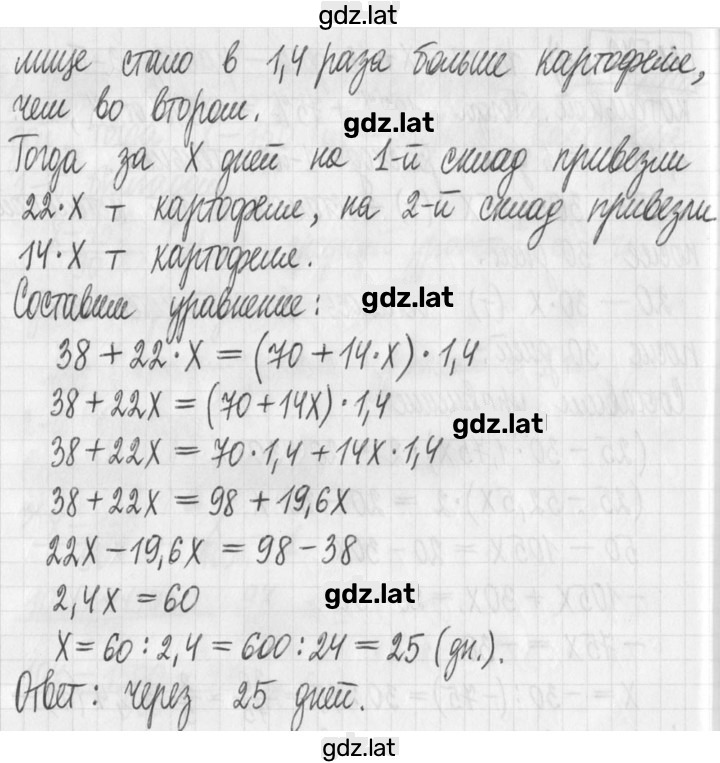 gdz.lat
лище стало в 1,4 раза больше картофеля,
чем во втором.
gdz.lat
Тогда за X дней на 1-й склад привезли
22·X т картофеля, на 2-й склад привезли
14·X т картофеля.
Составим уравнение:
gdz.lat
38 + 22·X = (70 + 14·X)·1,4
38 + 22X = (70 + 14X)·1,4
gdz.lat
38 + 22X = 70·1,4 + 14X·1,4
38 + 22X = 98 + 19,6X
22X − 19,6X = 98 − 38
2,4X = 60
gdz.lat
X = 60 : 2,4 = 600 : 24 = 25 (дн.).
Ответ: через 25 дней.
gdz.lat